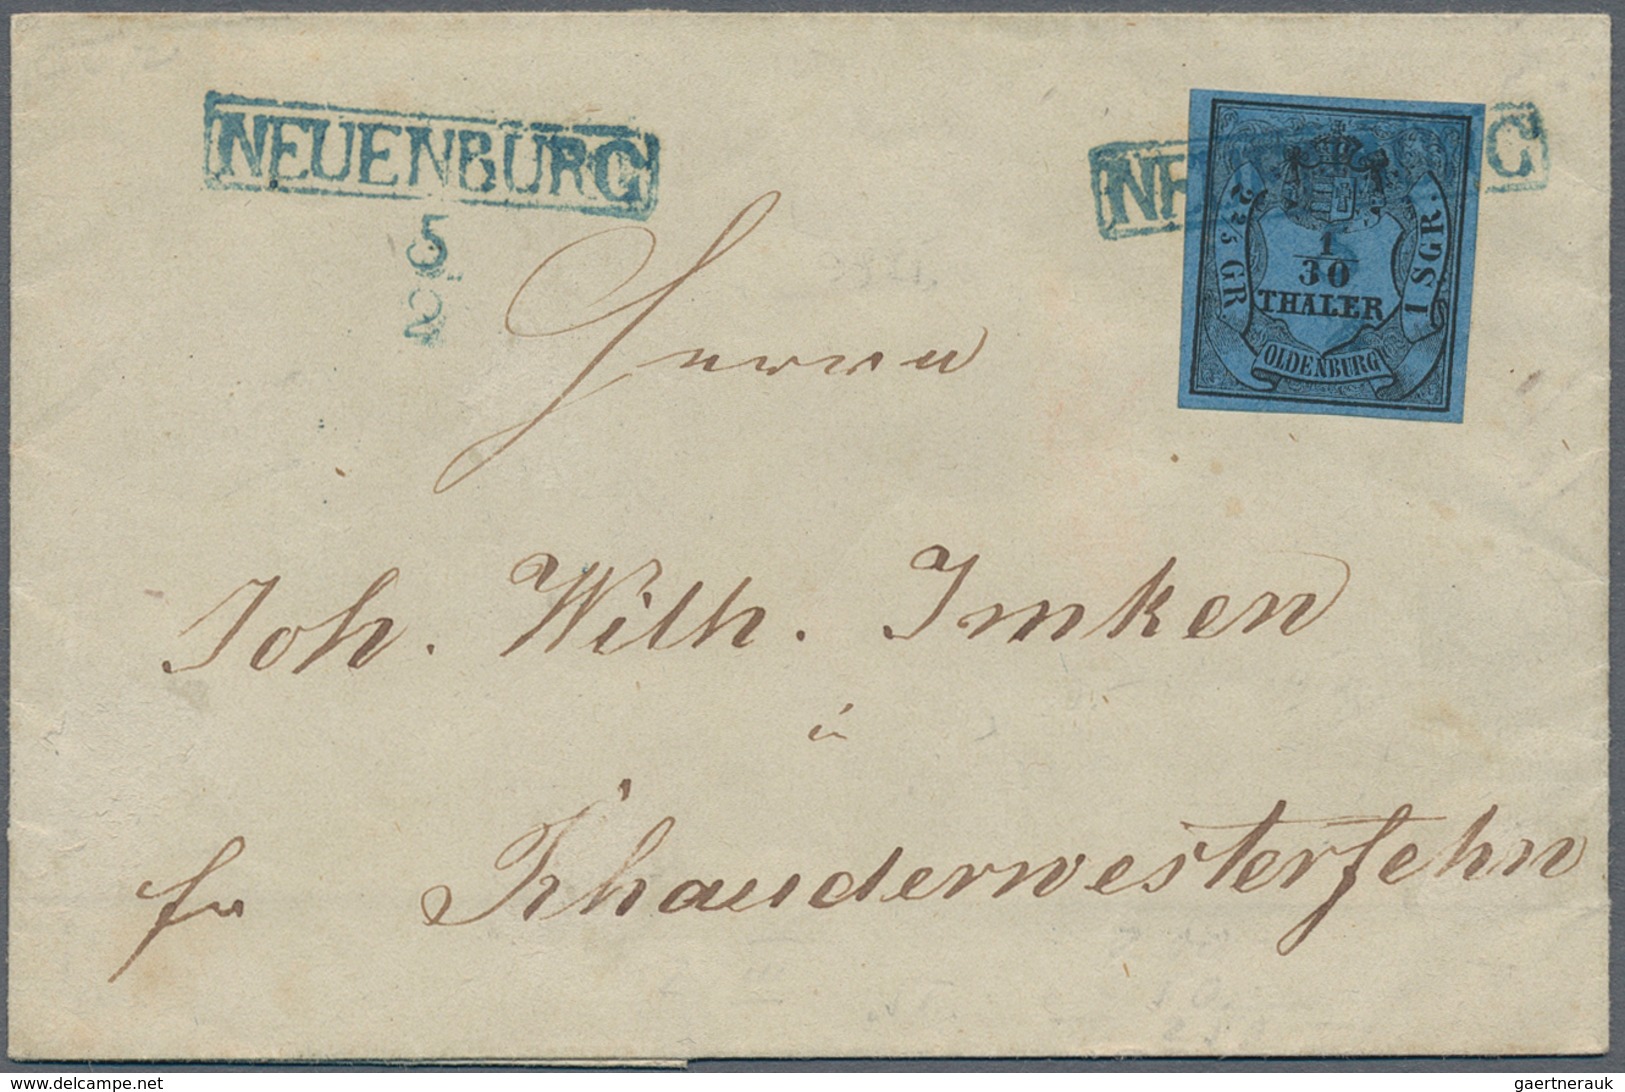 NEUENBURG
5
2
NE G
2 2/5 GR.
1/30
THALER
1 SGR.
OLDENBURG
Herrn
Joh. Wilh. Imken
in
fr Rhauderwesterfehn
www.delcampe.net
gaertnerauk